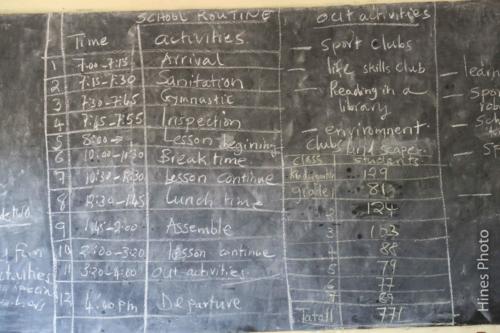 SCHOOL ROUTINE
Time activities
1 7:00-7:15 Arrival
2 7:15-7:30 Sanitation
3 7:30-7:45 Gymnastic
4 7:45-7:55 Inspection
5 8:00 Lesson begining
6 10:00-10:30 Break time
7 10:30-12:30 Lesson continue
8 12:30-1:45 Lunch time
9 1:45-2:00 Assemble
10 2:00-3:20 lesson continue
11 3:20-4:00 Out activities
12 4:00pm Departure
Out activities
— Sport clubs
— life skills club
— Reading in a
library
— environment
clubs
class students
129
grade 1 81
2 124
3 103
4 88
5 79
6 77
7 89
Total 771
Hines Photo